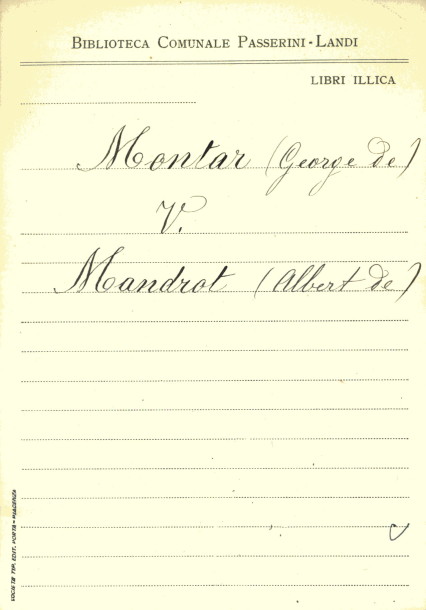 BIBLIOTECA COMUNALE PASSERINI-LANDI
LIBRI ILLICA
Montar (George de)
V.
Mandrot (Albert de)
SOCIETÀ TIP. EDIT. PORTA - PIACENZA